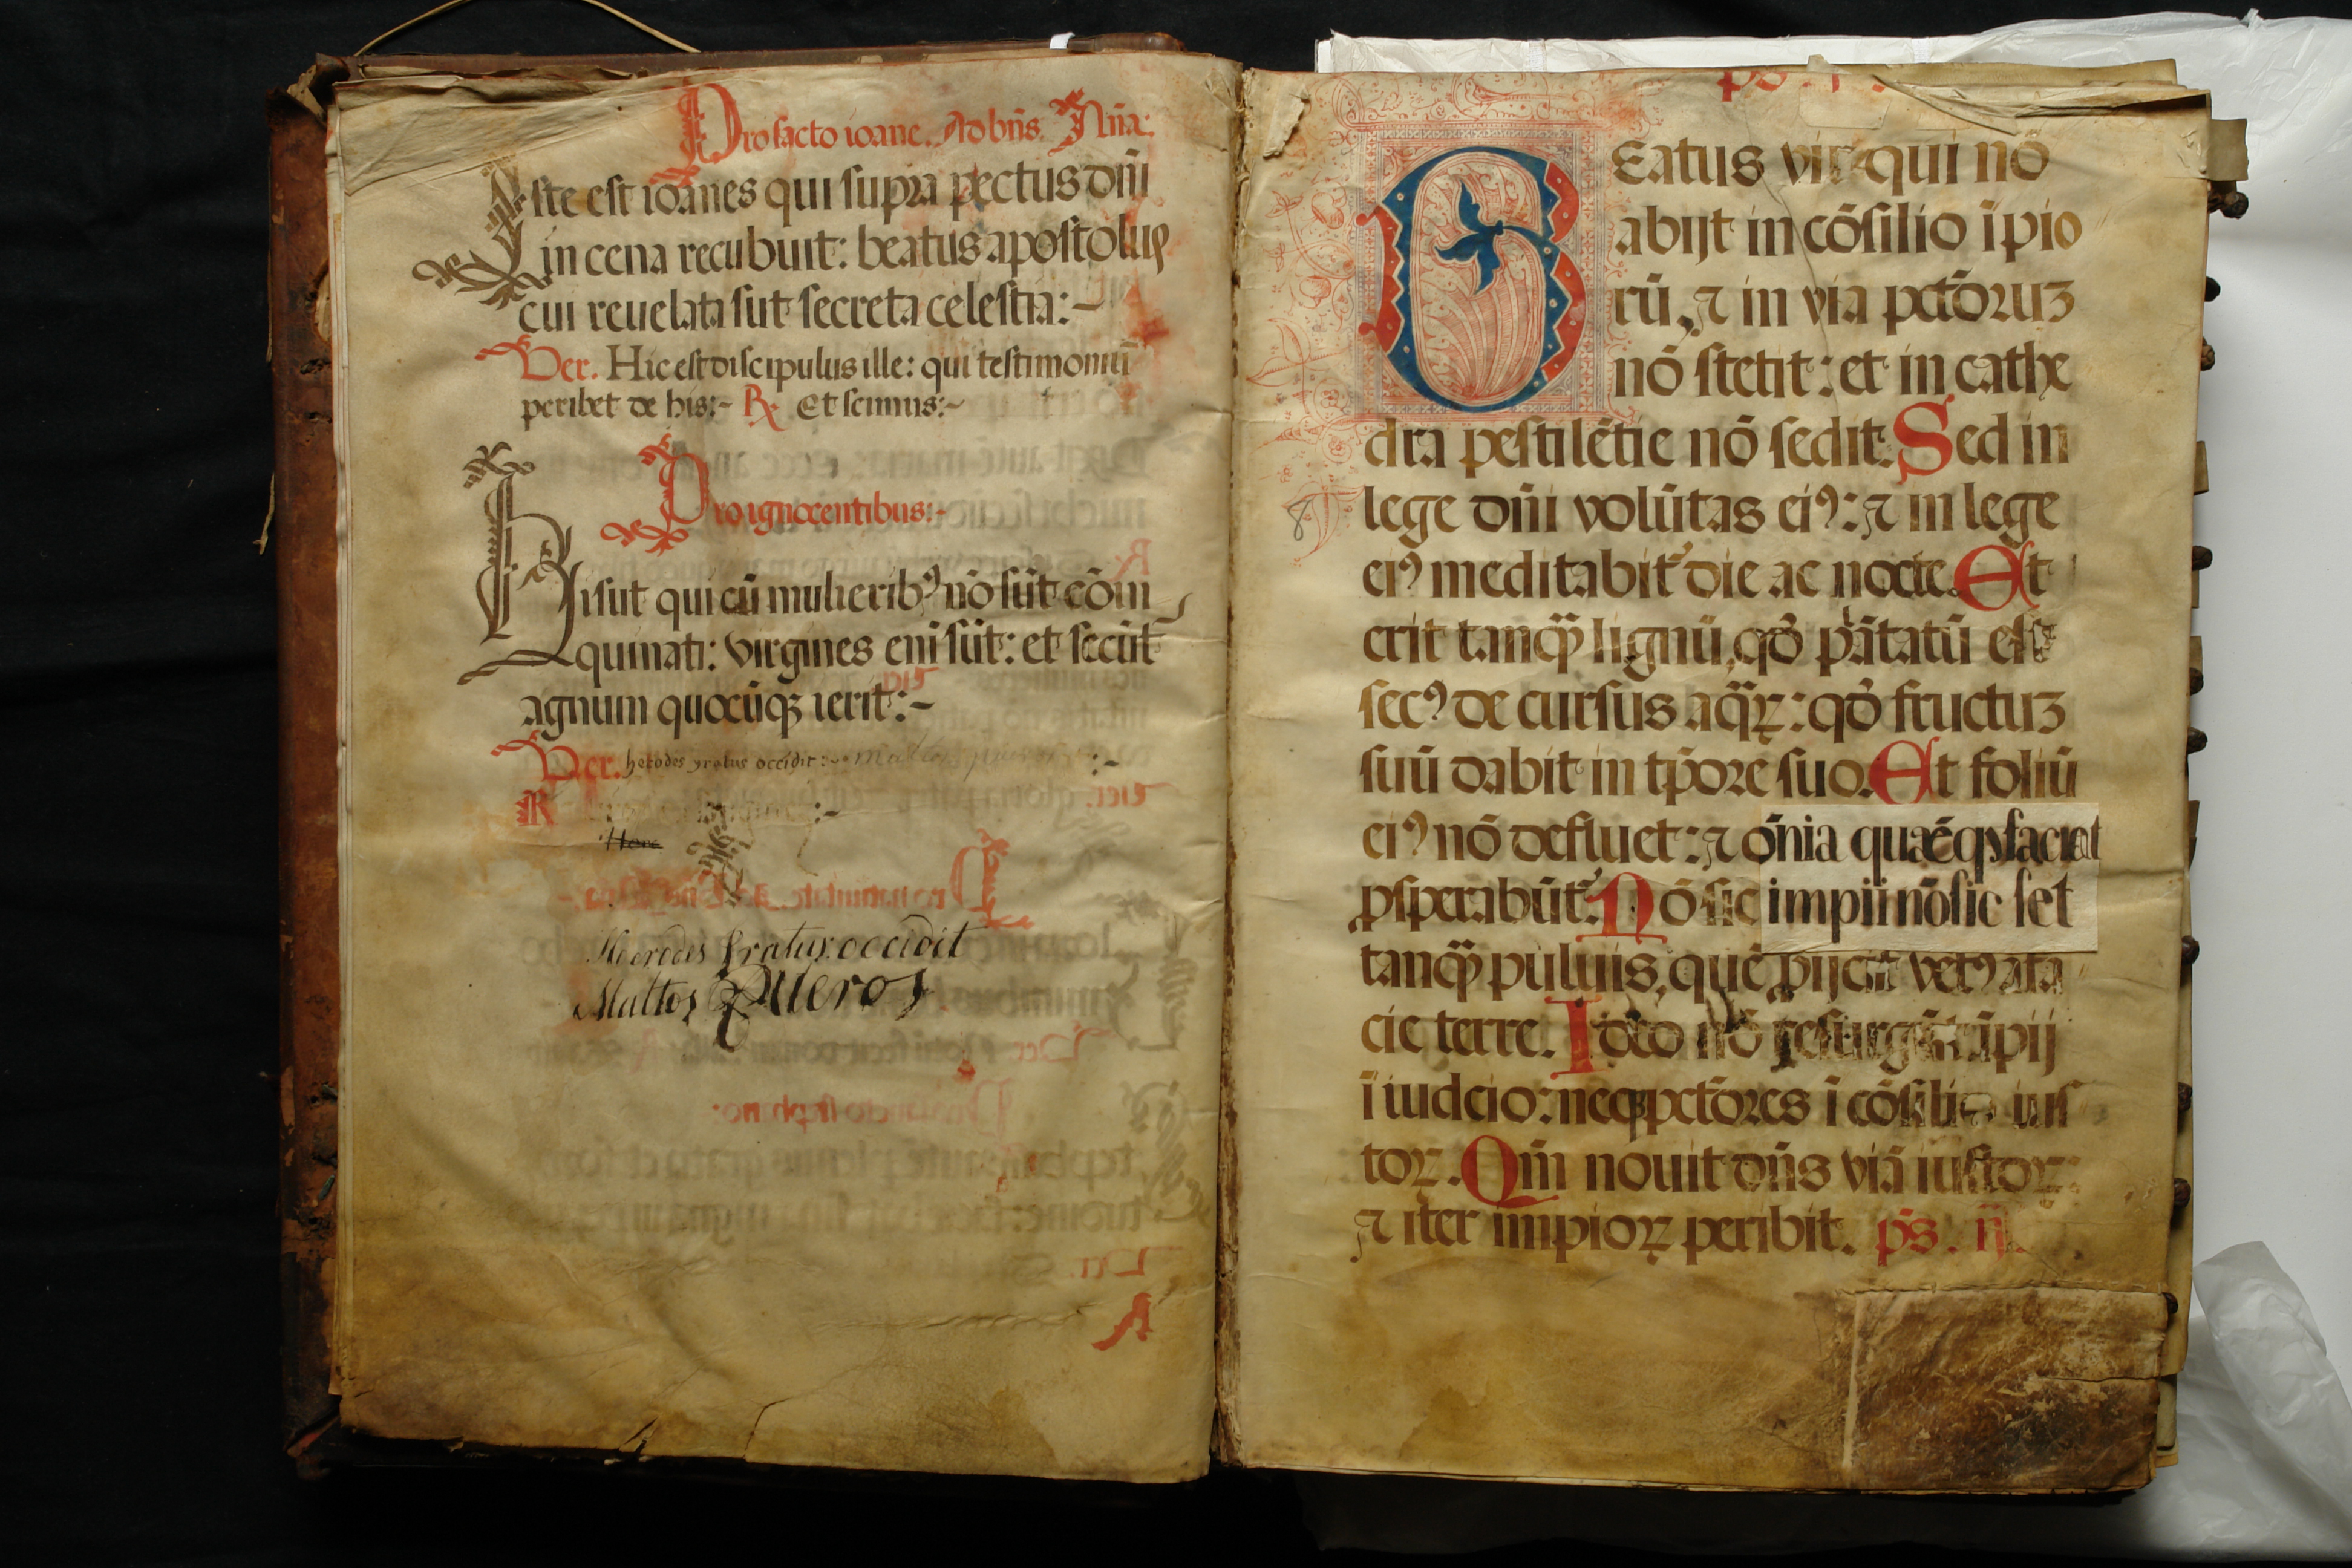 Pro sācto ioane. Ad bn̄s. Añā:
Iste est ioānes qui supra pectus dn̄i
in cena recubuit: beatus apostolus
cui reuelata sūt secreta celestia:~
Ver. Hic est discipulus ille: qui testimoniū
peribet de his:~ R Et scimus:~
Pro ignocentibus:~
Hi sūt qui cū mulierib⁹ nō sūt cōin
quinati: virgines eni sūt: et secūt
agnum quocūqꝫ ierit:~
Ver. herodes yratus occidit:~ :~
R :~
Herodes Yratus occidit
Multos Pueros
ps. I.
Beatus vir qui nō
abijt in cōsilio īpio
rū, ⁊ in via pctōruꝫ
nō stetit: et in cathe
dra pestilētie nō sedit. Sed in
lege dn̄i volūtas ei⁹: ⁊ in lege
8
ei⁹ meditabit᷑ die ac nocte. Et
erit tanqꝫ̄ lignū, qđ plātatū est
sec⁹ de cursus aq̄ꝝ: qđ fructuꝫ
suū dabit in tp̄ore suo. Et foliū
ei⁹ nō defluet: ⁊ ōnia quǣcqꝫ faciat
ꝓsperabūt᷑. Nō sic impii nō sic set
tanqꝫ̄ puluis, quē ꝓijcit vēt⁹ a fa
cie terre. Ideo nō resurgūt īpij
ī iudcio: neqꝫ pctōres ī cōsilio ius
toꝝ. Qm̄ nouit dn̄s viā iustoꝝ:
⁊ iter impioꝝ peribit. ps. ij.